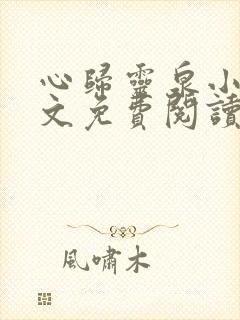 心歸靈泉小
文免費閱讀
風嘯木